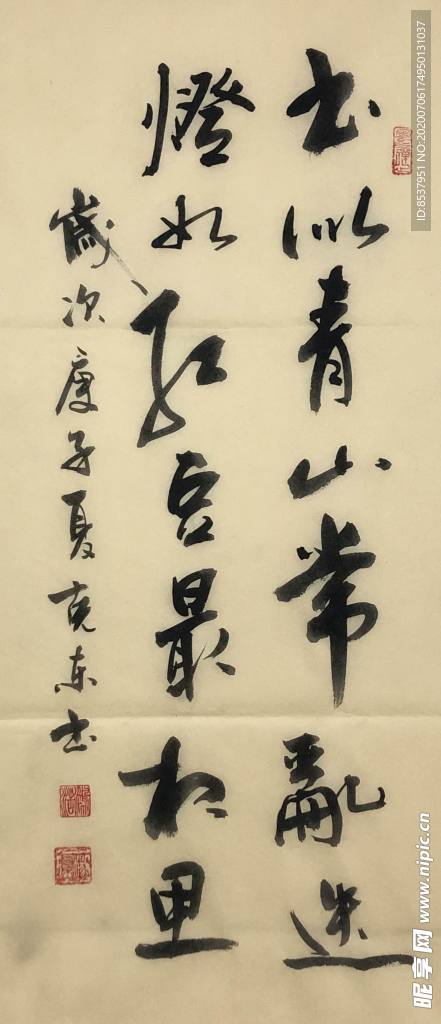 书似青山常亂迭
燈如红豆最相思
歲次庚子夏克东书
ID:8537951 NO:20200706174950131037
昵享网 www.nipic.cn